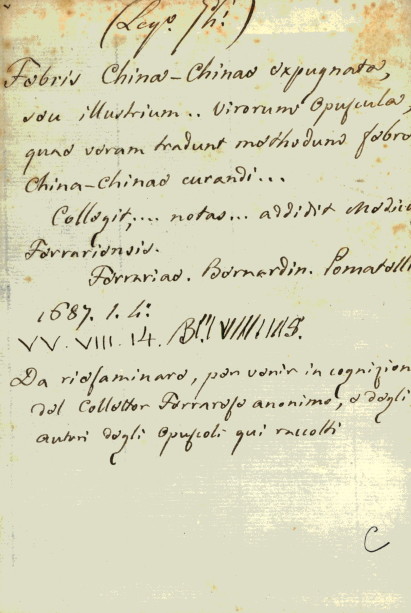 Febris China-Chinae expugnata,
seu illustrium .. virorum Opuscula,
quae veram tradunt methodum febre
China-Chinae curandi...
Collegit,... notas... addidit Medicu
Ferrariensis.
Ferrariae. Bernardin. Pomatelli
1687. 1.
VV. VIII. 14.
Da riesaminare, per venir in cognizion
del Collettor Ferrarese anonimo, e degli
autori degli Opuscoli qui raccolti
C